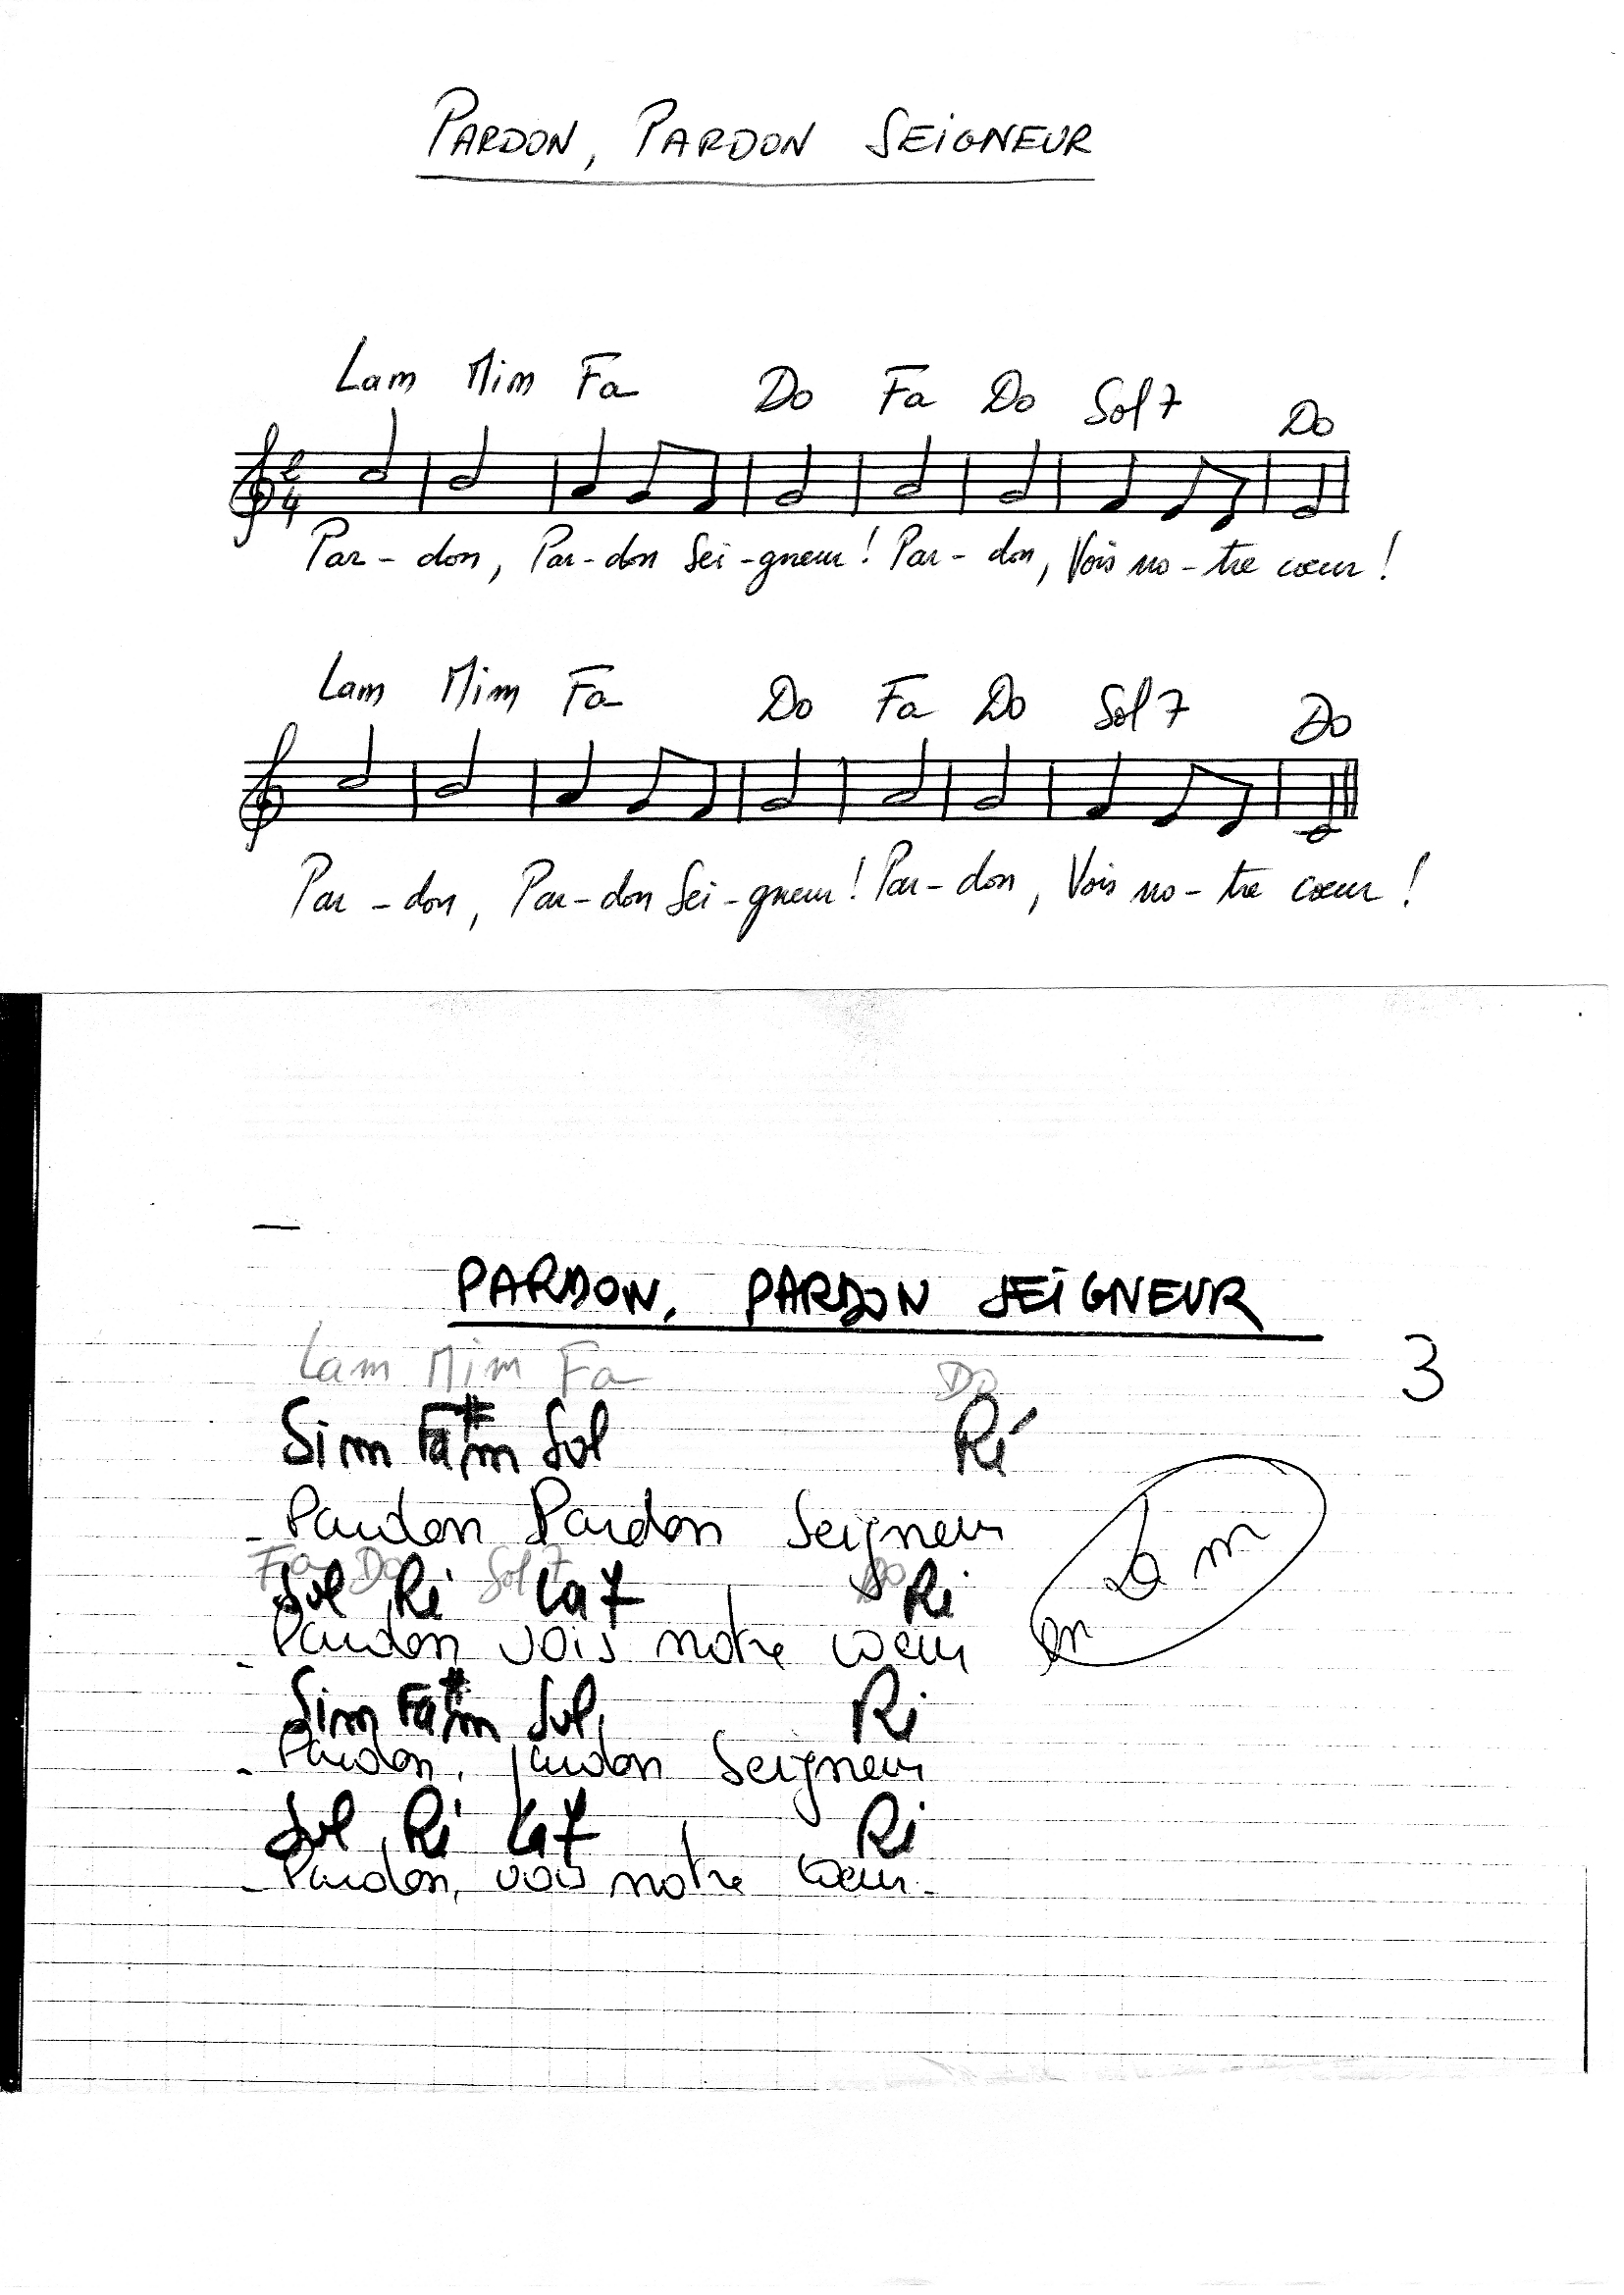 PARDON, PARDON SEIGNEUR
Lam Mim Fa Do Fa Do Sol7 Do
2
4
Par - don, Par-don Sei-gneur! Par-don, Vois no-tre cœur!
Lam Mim Fa Do Fa Do Sol7 Do
Par - don, Par-don Sei-gneur! Par-don, Vois no-tre cœur!
PARDON, PARDON SEIGNEUR
3
Lam Mim Fa Do
Sim Fa#m Sol Ré
- Pardon Pardon Seigneur
Fa Do Sol7 Do
Sol Ré La7 Ré
- Pardon vois notre cœur
en La m
Sim Fa#m Sol Ré
- Pardon, pardon Seigneur
Sol Ré La7 Ré
- Pardon, vois notre cœur.